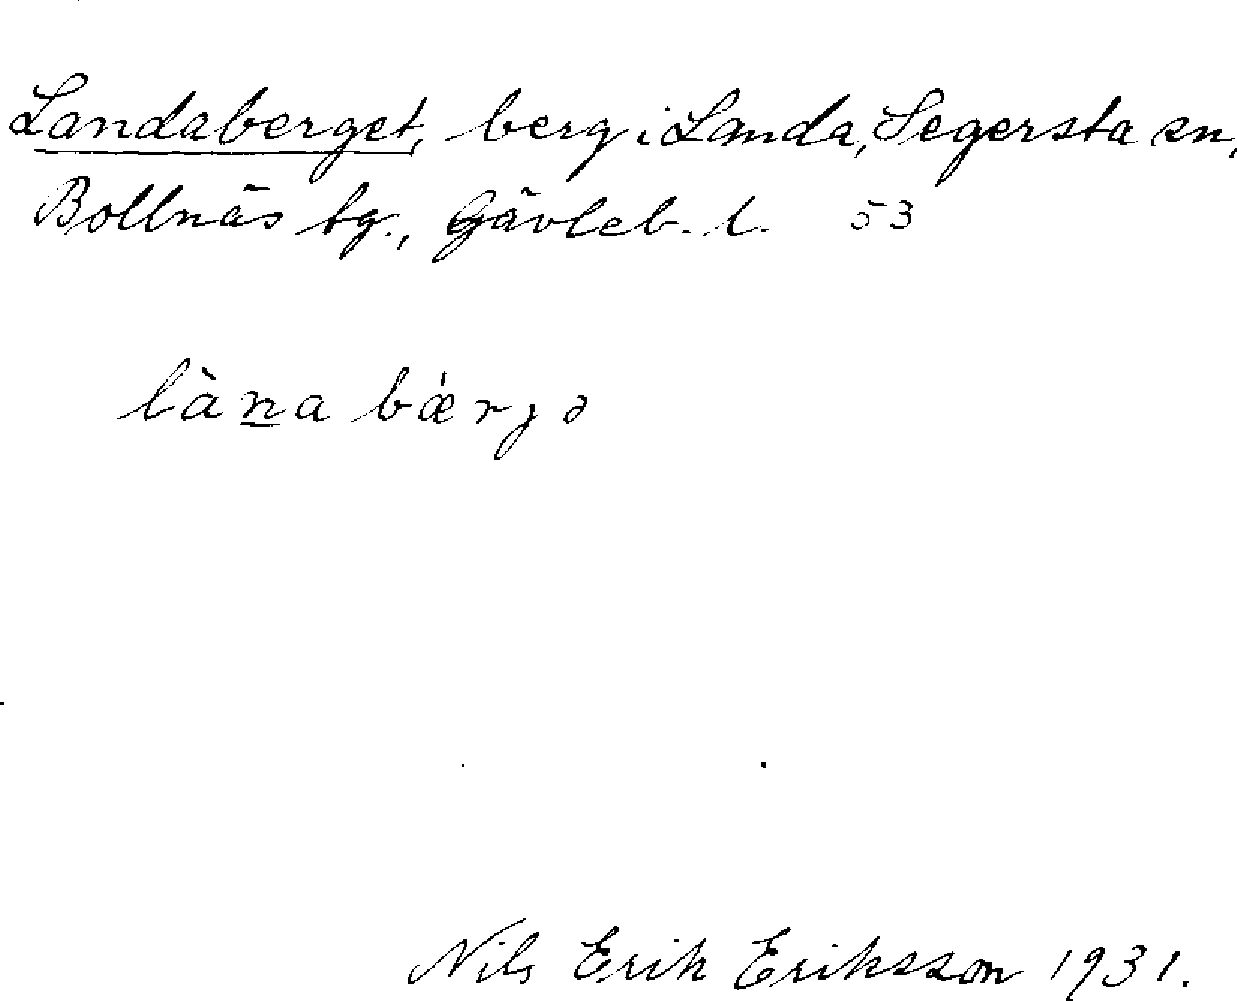 Landaberget, berg i Landa, Segersta sn,
Bollnäs tg., Gävleb. l. 53
làn̲a bǽrjə
Nils Erik Eriksson 1931.